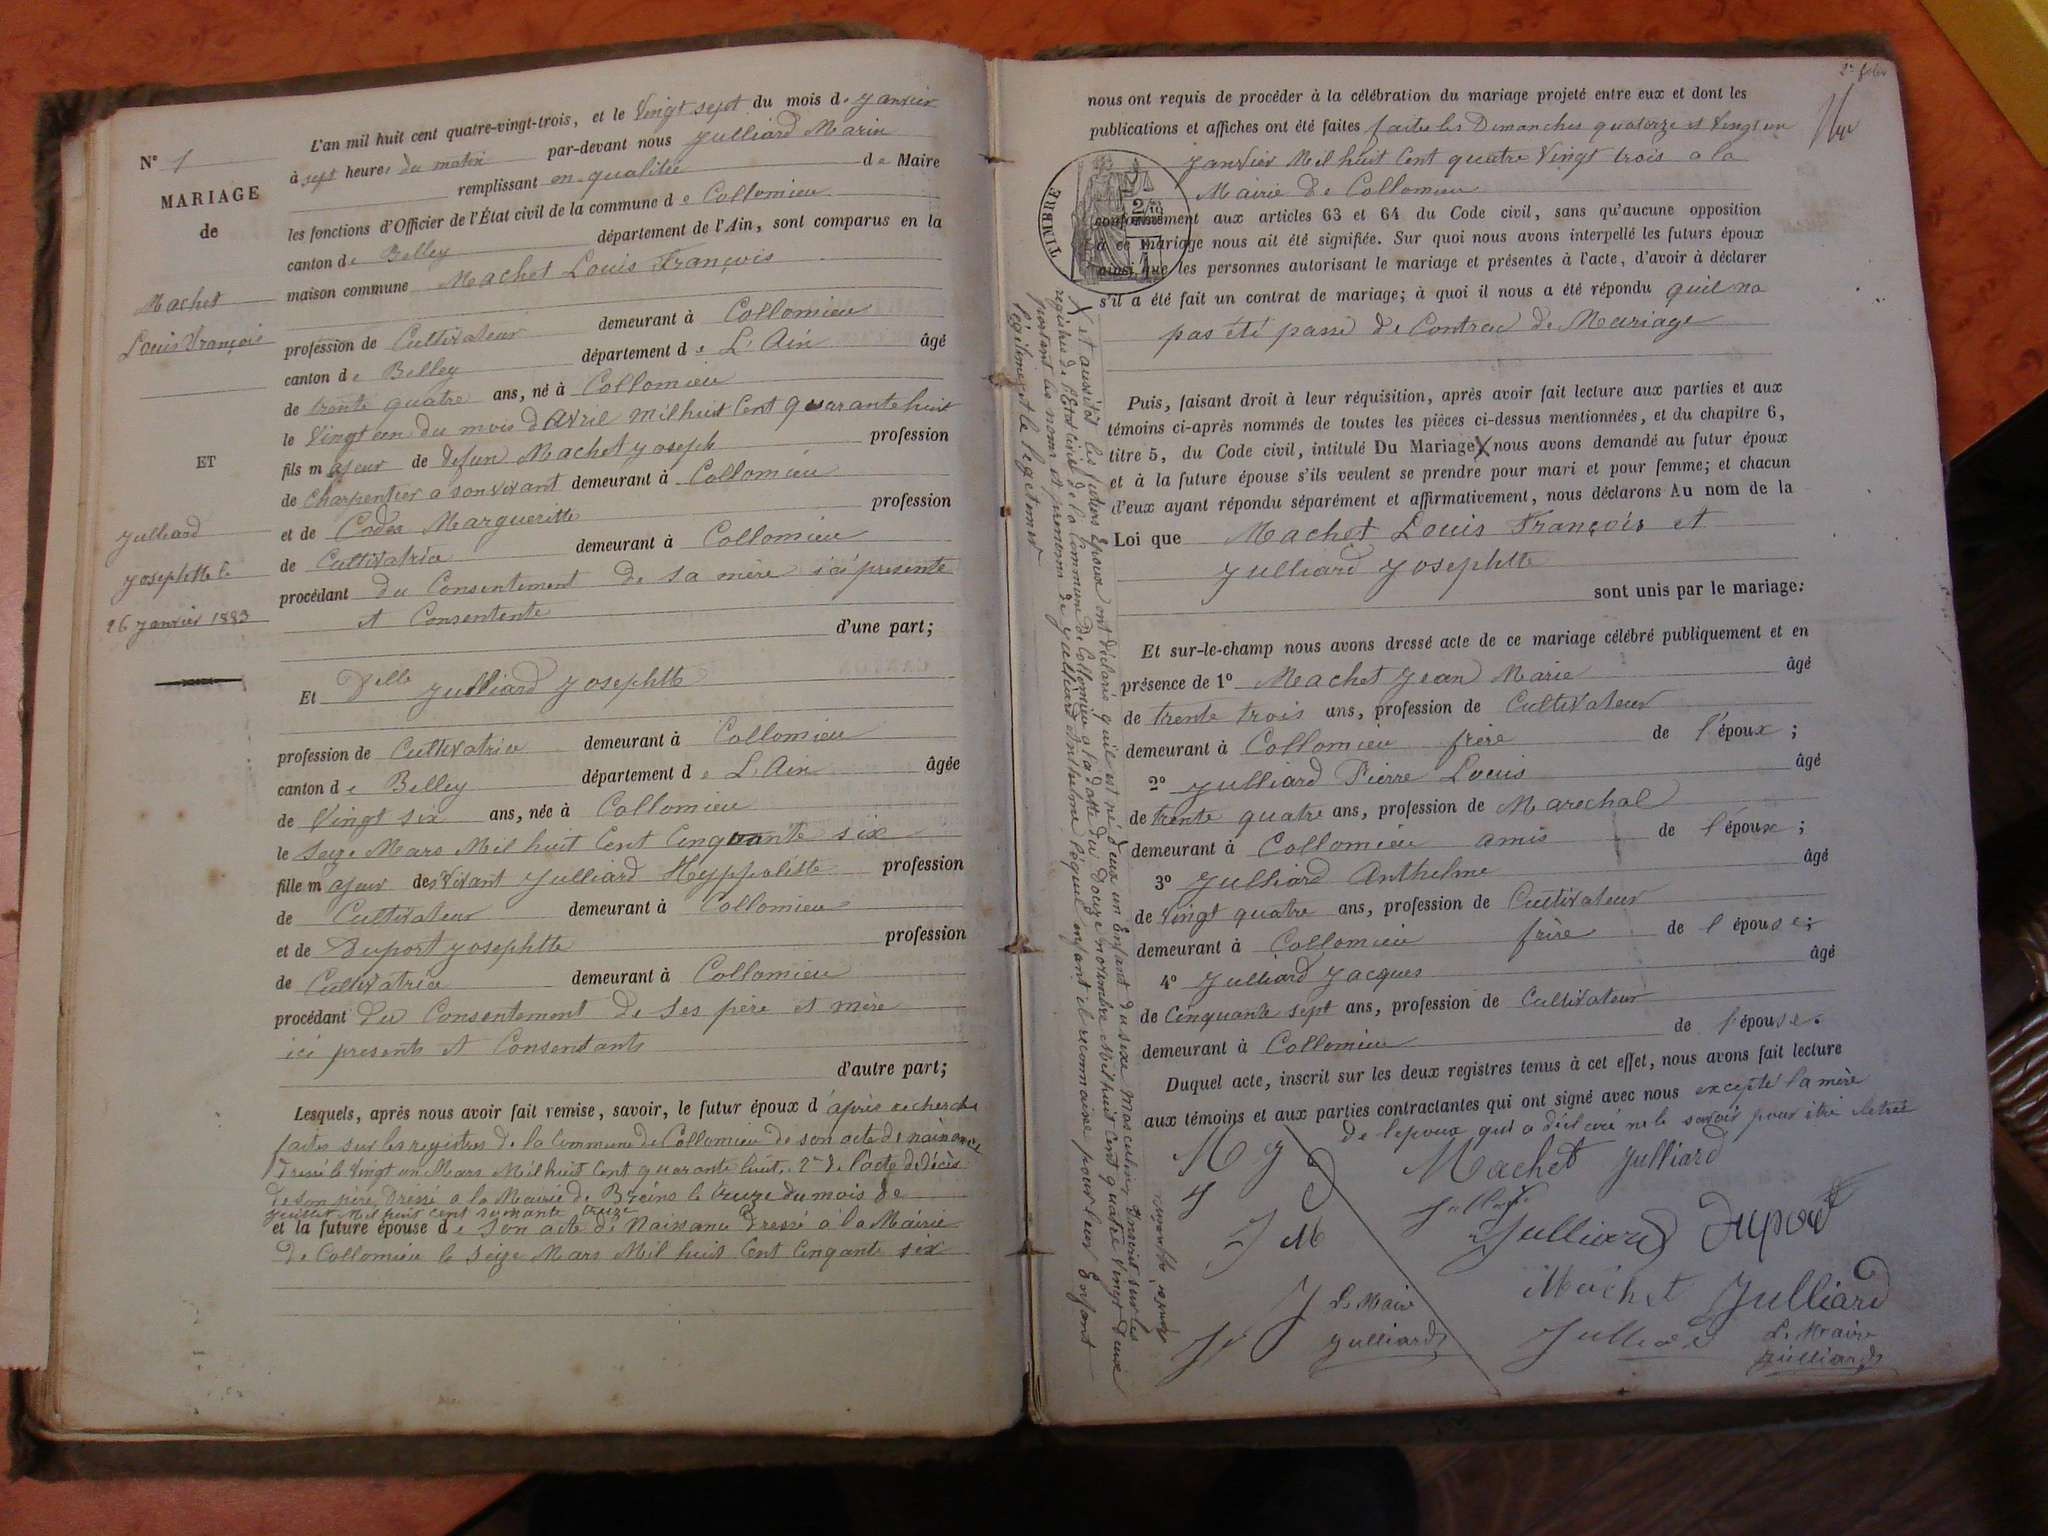 N° 1
MARIAGE
de
Machet
Louis François
ET
Julliard
Josephtte le
26 Janvier 1883
L'an mil huit cent quatre-vingt-trois, et le Vingt sept du mois de Janvier
à sept heures du matin par-devant nous Julliard Marin
remplissant en qualitée de Maire
les fonctions d'Officier de l'État civil de la commune de Collomieu
canton de Belley département de l'Ain, sont comparus en la
maison commune Machet Louis François
profession de Cultivateur demeurant à Collomieu
canton de Belley département de L'Ain âgé
de trente quatre ans, né à Collomieu
le Vingt un du mois d'Avril Mil huit Cent quarante huit
fils majeur de defun Machet Joseph profession
de Charpentier a son vivant demeurant à Collomieu
et de Margueritte profession
de Cultivatrice demeurant à Collomieu
procédant du Consentement de sa mère ici présente
et Consentente
d'une part;
Et Delle Julliard Josephtte
profession de Cultivatrice demeurant à Collomieu
canton de Belley département de L'Ain âgée
de Vingt six ans, née à Collomieu
le Seize Mars Mil huit Cent Cinquante six
fille majeur des vivant Julliard Hyppolitte profession
de Cultivateur demeurant à Collomieu
et de Duport Josephtte profession
de Cultivatrice demeurant à Collomieu
procédant du Consentement de ses père et mère
ici presents et Consentants
d'autre part;
Lesquels, après nous avoir fait remise, savoir, le futur époux d'après recherche
faites sur les registres de la Commune de Collomieu de son acte de naissance
Dressé le Vingt un Mars Mil huit Cent quarante huit, 2° de l'acte de décès
de son père, Dressé a la Mairie de le treize du mois de
Juillet Mil huit cent soixante treize
et la future épouse de son acte de Naissance Dressé à la Mairie
de Collomieu le Seize Mars Mil huit Cent Cinqante six
nous ont requis de procéder à la célébration du mariage projeté entre eux et dont les
publications et affiches ont été faites faites les Dimanches quatorze et Vingt un
Janvier Mil huit Cent quatre Vingt trois a la
Mairie de Collomieu
TIMBRE
conformément aux articles 63 et 64 du Code civil, sans qu'aucune opposition
à ce mariage nous ait été signifiée. Sur quoi nous avons interpellé les futurs époux
ainsi que les personnes autorisant le mariage et présentes à l'acte, d'avoir à déclarer
s'il a été fait un contrat de mariage; à quoi il nous a été répondu quil na
pas été passé de Contrat de Mariage
Puis, faisant droit à leur réquisition, après avoir fait lecture aux parties et aux
témoins ci-après nommés de toutes les pièces ci-dessus mentionnées, et du chapitre 6,
titre 5, du Code civil, intitulé Du Mariage X nous avons demandé au futur époux
et à la future épouse s'ils veulent se prendre pour mari et pour femme; et chacun
d'eux ayant répondu séparément et affirmativement, nous déclarons Au nom de la
Loi que Machet Louis François et
Julliard Josephtte
sont unis par le mariage:
Et sur-le-champ nous avons dressé acte de ce mariage célébré publiquement et en
présence de 1° Machet Jean Marie âgé
de trente trois ans, profession de Cultivateur
demeurant à Collomieu frère de l'époux;
2° Julliard Pierre Louis âgé
de trente quatre ans, profession de Marechal
demeurant à Collomieu amis de l'époux;
3° Julliard Anthelme âgé
de Vingt quatre ans, profession de Cultivateur
demeurant à Collomieu frère de l'épouse;
4° Julliard Jacques âgé
de Cinquante sept ans, profession de Cultivateur
demeurant à Collomieu de l'épouse.
Duquel acte, inscrit sur les deux registres tenus à cet effet, nous avons fait lecture
aux témoins et aux parties contractantes qui ont signé avec nous excepté la mère
de l'époux qui a déclaré ne le savoir pour être
X et aussitôt les futurs Epoux ont déclaré qu'il est né d'eux un Enfant du sexe Masculin Inscrit sur les
registres de l'Etat civil de la Commune de Collomieu a la datte du douze novembre Mil huit Cent quatre Vingt deux
portant les nom et prenom de Julliard Anthelme lequel enfant il reconnaisse pour leur Enfant
légitime et le legetimer
M J
J
J M
J
Le Maire
Julliard
Machet Julliard
Julliard Dupord
Machet Julliard
Julliard
Le Maire
Julliard